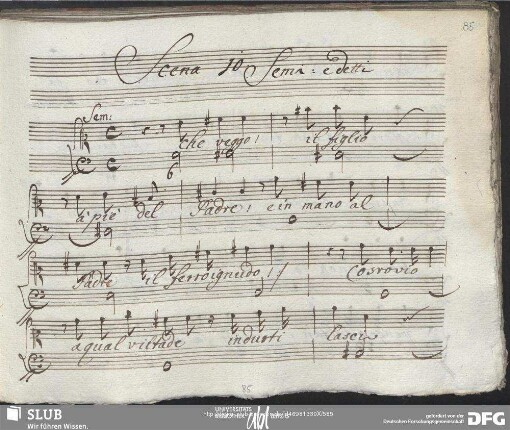 85
Scena 10 Semi: e detti
Sem:
che veggo! il figlio
6
a piè del Padre! e in mano al
Padre il ferro ignudo!
Cosrovio
a qual viltade industi lascia
85
SLUB
Wir führen Wissen.
gefördert von der
Deutschen Forschungsgemeinschaft
DFG